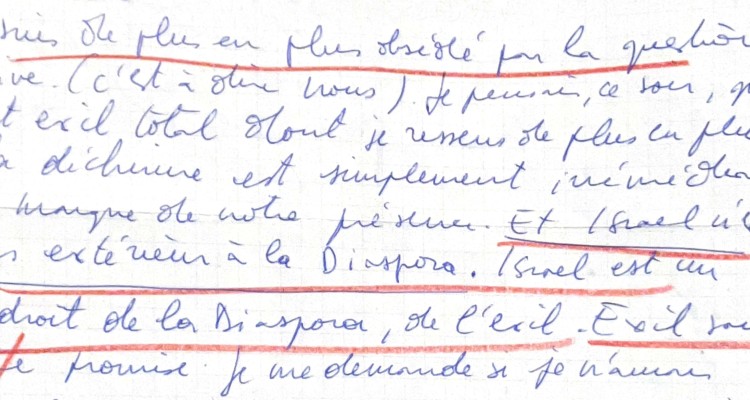 suis de plus en plus obsédé par la question
ive. (c'est à dire nous). Je pensais, ce soir, q
t exil total dont je ressens de plus en plu
a déchirure est simplement irrémédia
marque de notre présence. Et Israel n'e
s extérieur à la Diaspora. Israel est un
droit de la Diaspora, de l'exil. Exil sur
e promise. Je me demande si je n'aurais